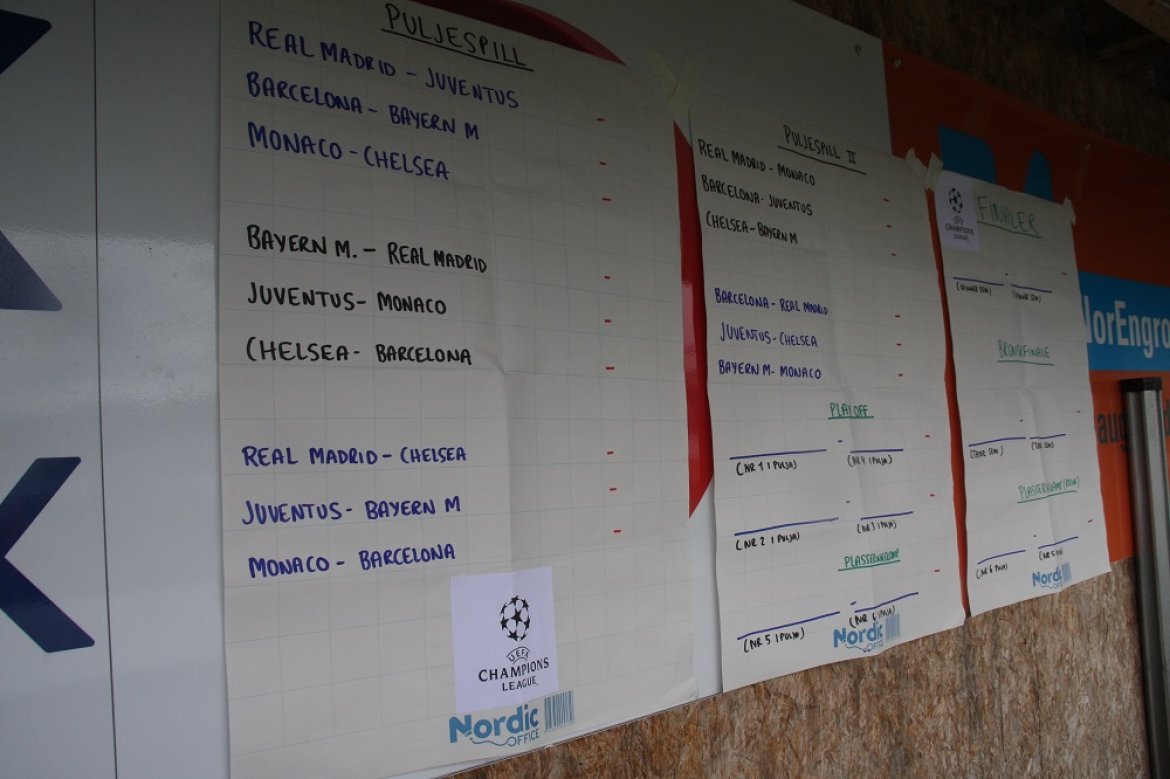 PULJESPILL
REAL MADRID - JUVENTUS -
BARCELONA - BAYERN M -
MONACO - CHELSEA -
BAYERN M. - REAL MADRID -
JUVENTUS - MONACO -
CHELSEA - BARCELONA -
REAL MADRID - CHELSEA -
JUVENTUS - BAYERN M -
MONACO - BARCELONA -
UEFA
CHAMPIONS
LEAGUE
Nordic
OFFICE
PULJESPILL II
REAL MADRID - MONACO -
BARCELONA - JUVENTUS -
CHELSEA - BAYERN M -
BARCELONA - REAL MADRID -
JUVENTUS - CHELSEA -
BAYERN M - MONACO -
PLAY OFF
- -
(NR 1 I PULJA) (NR 4 I PULJA)
- -
(NR 2 I PULJA) (NR 3 I PULJA)
PLASSERINGSKAMP
- -
(NR 5 I PULJA) (NR 6 I PULJA)
Nordic
OFFICE
CHAMPIONS
LEAGUE
FINALER
- -
(VINNER SEMI) (VINNER SEMI)
BRONSEFINALE
- -
(TAPER SEMI) (TAP SEMI)
- -
(NR 6 (NR 5
Nordic
OFFICE
NorEngro
aug